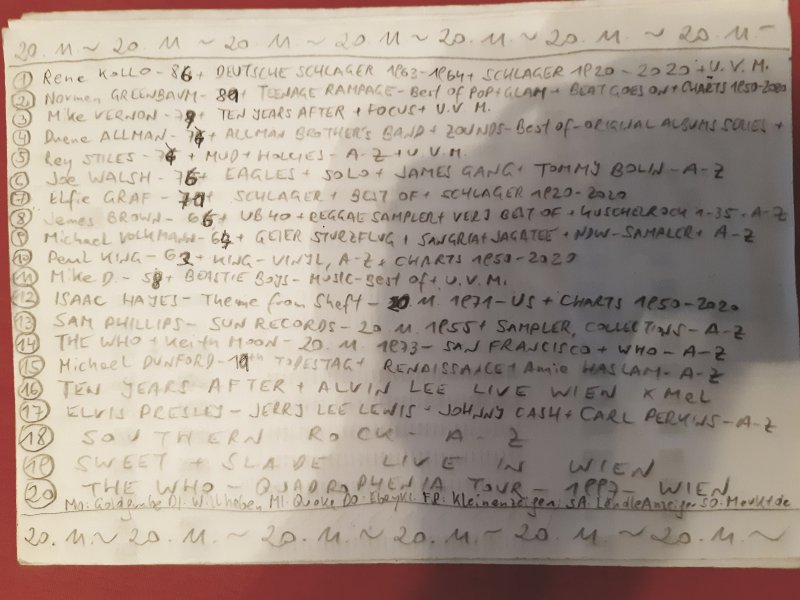 20. 11 ~ 20. 11 ~ 20. 11 ~ 20. 11 ~ 20. 11 ~ 20. 11 ~ 20. 11 -
① Rene KOLLO - 86 + DEUTSCHE SCHLAGER 1963-1964 + SCHLAGER 1920-2020 + U. V. M.
② Normen GREENBAUM - 89 + TEENAGE RAMPAGE - Best of POP + GLAM + BEAT GOES ON + CHARTS 1950-2020
③ Mike VERNON - 79 + TEN YEARS AFTER + FOCUS + U. V M.
④ Duene ALLMAN - + ALLMAN BROTHER'S BAND + ZOUNDS - Best of - ORIGINAL ALBUMS SERIES +
⑤ Rey STILES - + MUD + HOLLIES - A-Z + U. V. M.
⑥ Joe WALSH - 76 + EAGLES + SOLO + JAMES GANG + TOMMY BOLIN - A-Z
⑦ Elfie GRAF - + SCHLAGER + BEST OF + SCHLAGER 1920-2020
⑧ James BROWN - 66 + UB 40 + REGGAE SAMPLER + VERY BEST OF + KUSCHELROCK 1-35 - A-Z
⑨ Michael VOLKMANN - 64 + GEIER STURZFLUG + SANGRIA + JAGATEE + NDW - SAMPLER + A-Z
⑩ Paul KING - + KING - VINYL, A-Z + CHARTS 1950-2020
⑪ Mike D. - 58 + BEASTIE BOYS - MUSIC - Best of + U. V. M.
⑫ ISAAC HAYES - Theme from Sheft - 20. 11. 1971 - US + CHARTS 1950-2020
⑬ SAM PHILLIPS - SUN RECORDS - 20. 11. 1955 + SAMPLER, COLLECTIONS - A-Z
⑭ THE WHO + Keith MOON - 20. 11. 1973 - SAN FRANCISCO + WHO - A-Z
⑮ Michael DUNFORD - TODESTAG + RENAISSANCE + Annie HASLAM - A-Z
⑯ TEN YEARS AFTER + ALVIN LEE LIVE WIEN X MEL
⑰ ELVIS PRESLEY - JERRY LEE LEWIS + JOHNNY CASH + CARL PERKINS - A-Z
⑱ SOUTHERN ROCK - A-Z
⑲ SWEET + SLADE LIVE IN WIEN
⑳ THE WHO - QUADROPHENIA TOUR - 1997 - WIEN
MO: Goldgrube DI: Willhaben MI: Quoka DO: FR: Kleinanzeigen SA: LändleAnzeiger SO: Markt.de
20. 11 ~ 20. 11 ~ 20. 11 ~ 20. 11 ~ 20. 11 ~ 20. 11 ~ 20. 11 ~